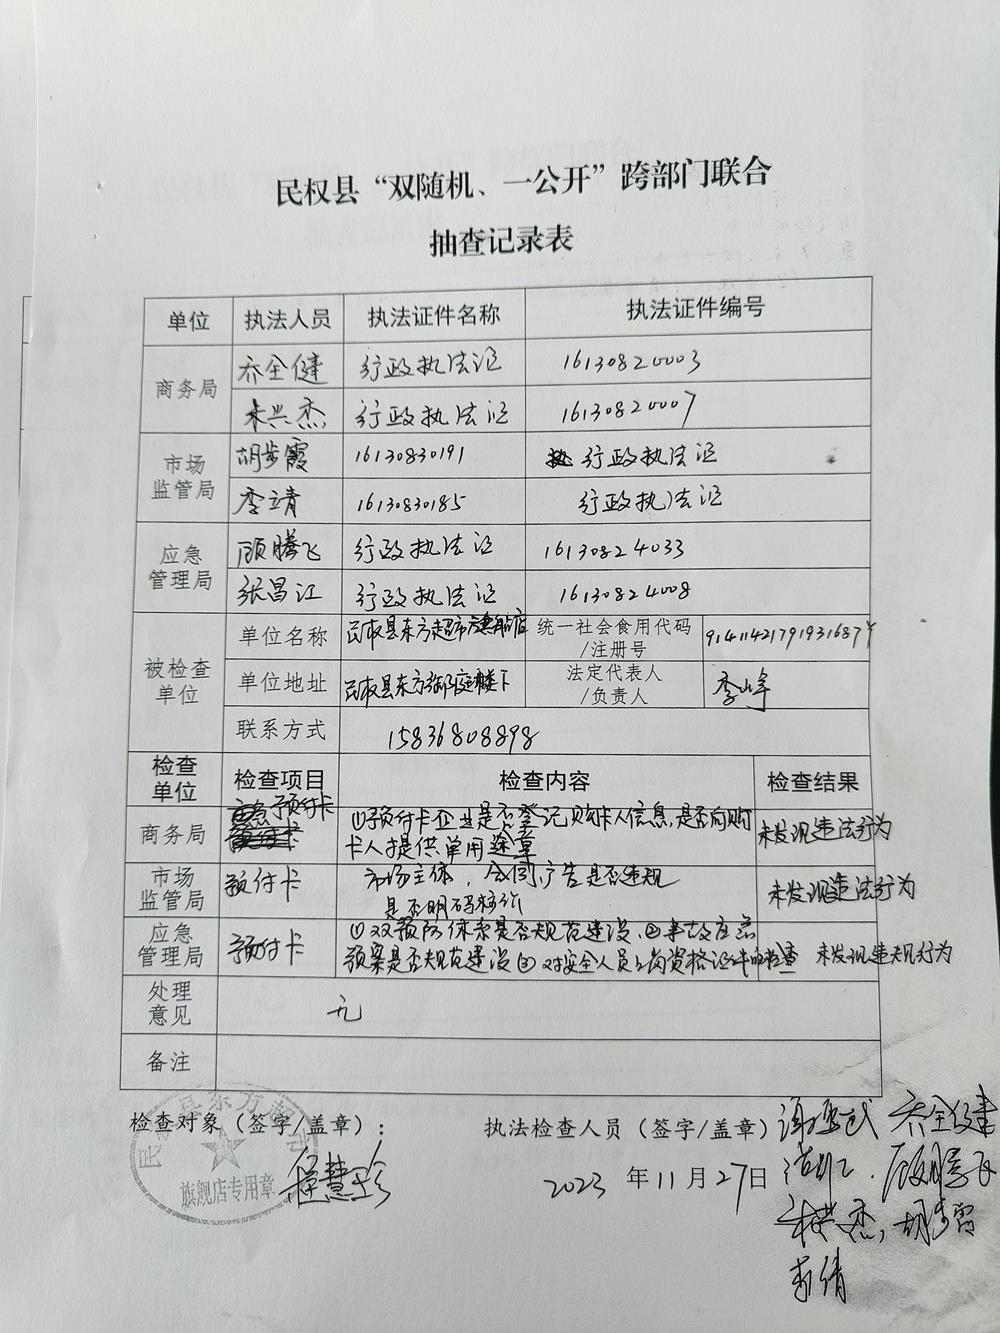 民权县“双随机、一公开”跨部门联合
抽查记录表
单位 执法人员 执法证件名称 执法证件编号
商务局 乔全健 行政执法证 16130820003
宋兴杰 行政执法证 16130820007
市场
监管局
胡步霞 16130830191 行政执法证
李靖 16130830185 行政执法证
应急
管理局
顾腾飞 行政执法证 16130824033
张昌江 行政执法证 16130824008
被检查
单位
单位名称 民权县东方超市旗舰店 统一社会食用代码
/注册号
单位地址 民权县东方 楼下 法定代表人
/负责人
李峰
联系方式 15836808898
检查
单位
检查项目 检查内容 检查结果
商务局 预付卡 ①预付卡企业是否登记购卡人信息,是否向购
卡人提供单用途章
未发现违法行为
市场
监管局
预付卡 市场主体,合同,广告是否违规
是否明码标价
未发现违法行为
应急
管理局
预付卡 ①双预防体系是否规范建设、②事故应急
预案是否规范建设③对安全人员上岗资格证 检查
未发现违规行为
处理
意见
无
备注
检查对象(签字/盖章):
旗舰店专用章
执法检查人员(签字/盖章) 乔全健
2023 年 11 月 27 日 顾腾飞
宋兴杰, 胡步霞
李靖